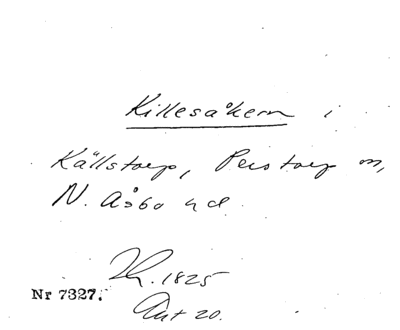 Killesåkern i
Källstorp, Perstorp sn,
N. Åsbo hd.
1825
Nr 7327.
Akt 20.